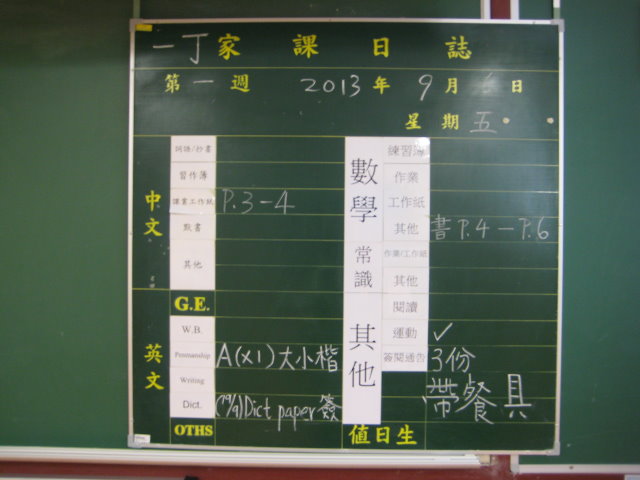 一丁家課日誌
第一週 2013年9月6日
星期五
中文
詞語/抄書
習作簿
課業工作紙 P.3-4
默書
其他
G.E.
英文
W.B.
Penmanship A(x1)大小楷
Writing
Dict. Dict paper簽
OTHS
數學
練習簿
作業
工作紙
其他 書P.4-P.6
常識
作業/工作紙
其他
其他
閱讀
運動 ✓
簽閱通告 3份
帶餐具
值日生